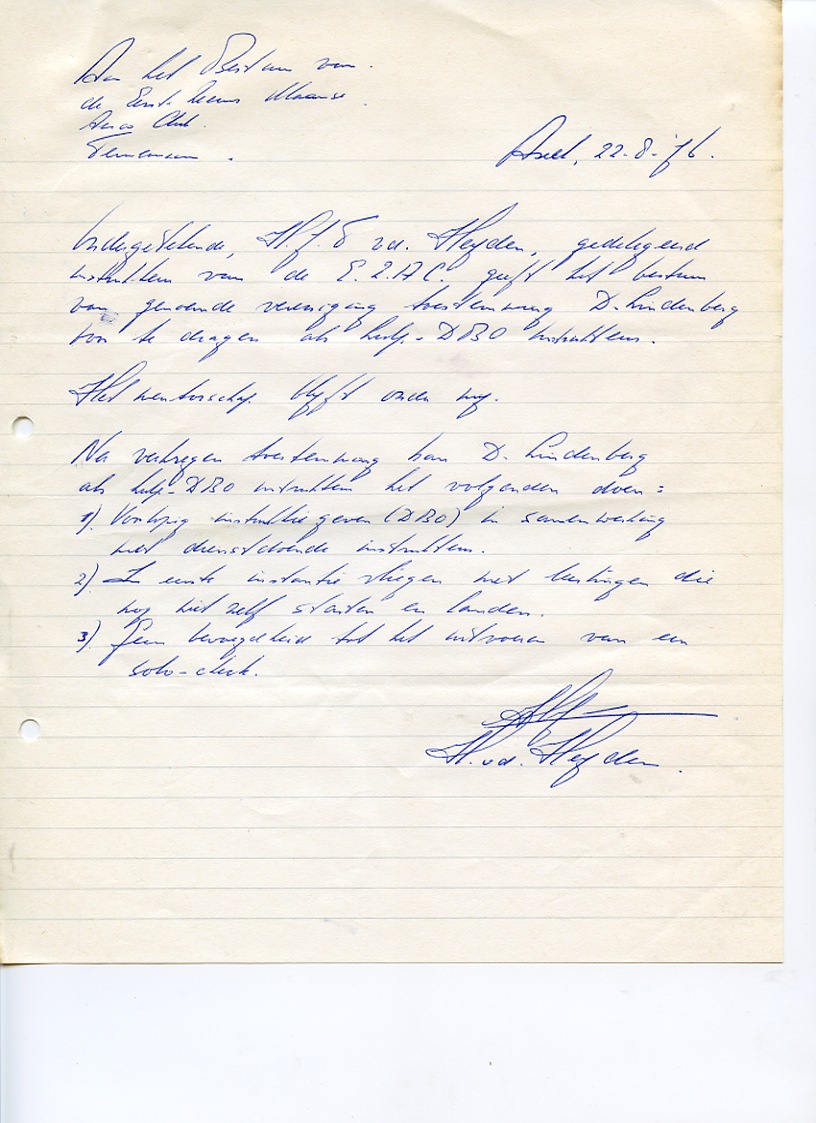 Aan het Bestuur van
de Eerste Zeeuws Vlaamse
Aero Club
Terneuzen.
Axel, 22-8-'76.
Ondergetekende, H.J.G vd. Heyden, gedelegeerd
instrukteur van de E.Z.A.C. geeft het bestuur
van genoemde vereniging toestemming D. Lindenberg
voor te dragen als hulp-DBO instrukteur.
Het mentorschap blijft onder mij.
Na verkregen toestemming kan D. Lindenberg
als hulp-DBO instrukteur het volgenden doen:
1) Voorlopig instruktie geven (DBO) in samenwerking
met dienstdoende instrukteur.
2) In eerste instantie vliegen met leerlingen die
nog niet zelf starten en landen.
3) Geen bevoegdheid tot het uitvoeren van een
solo-check.
H. vd. Heyden.